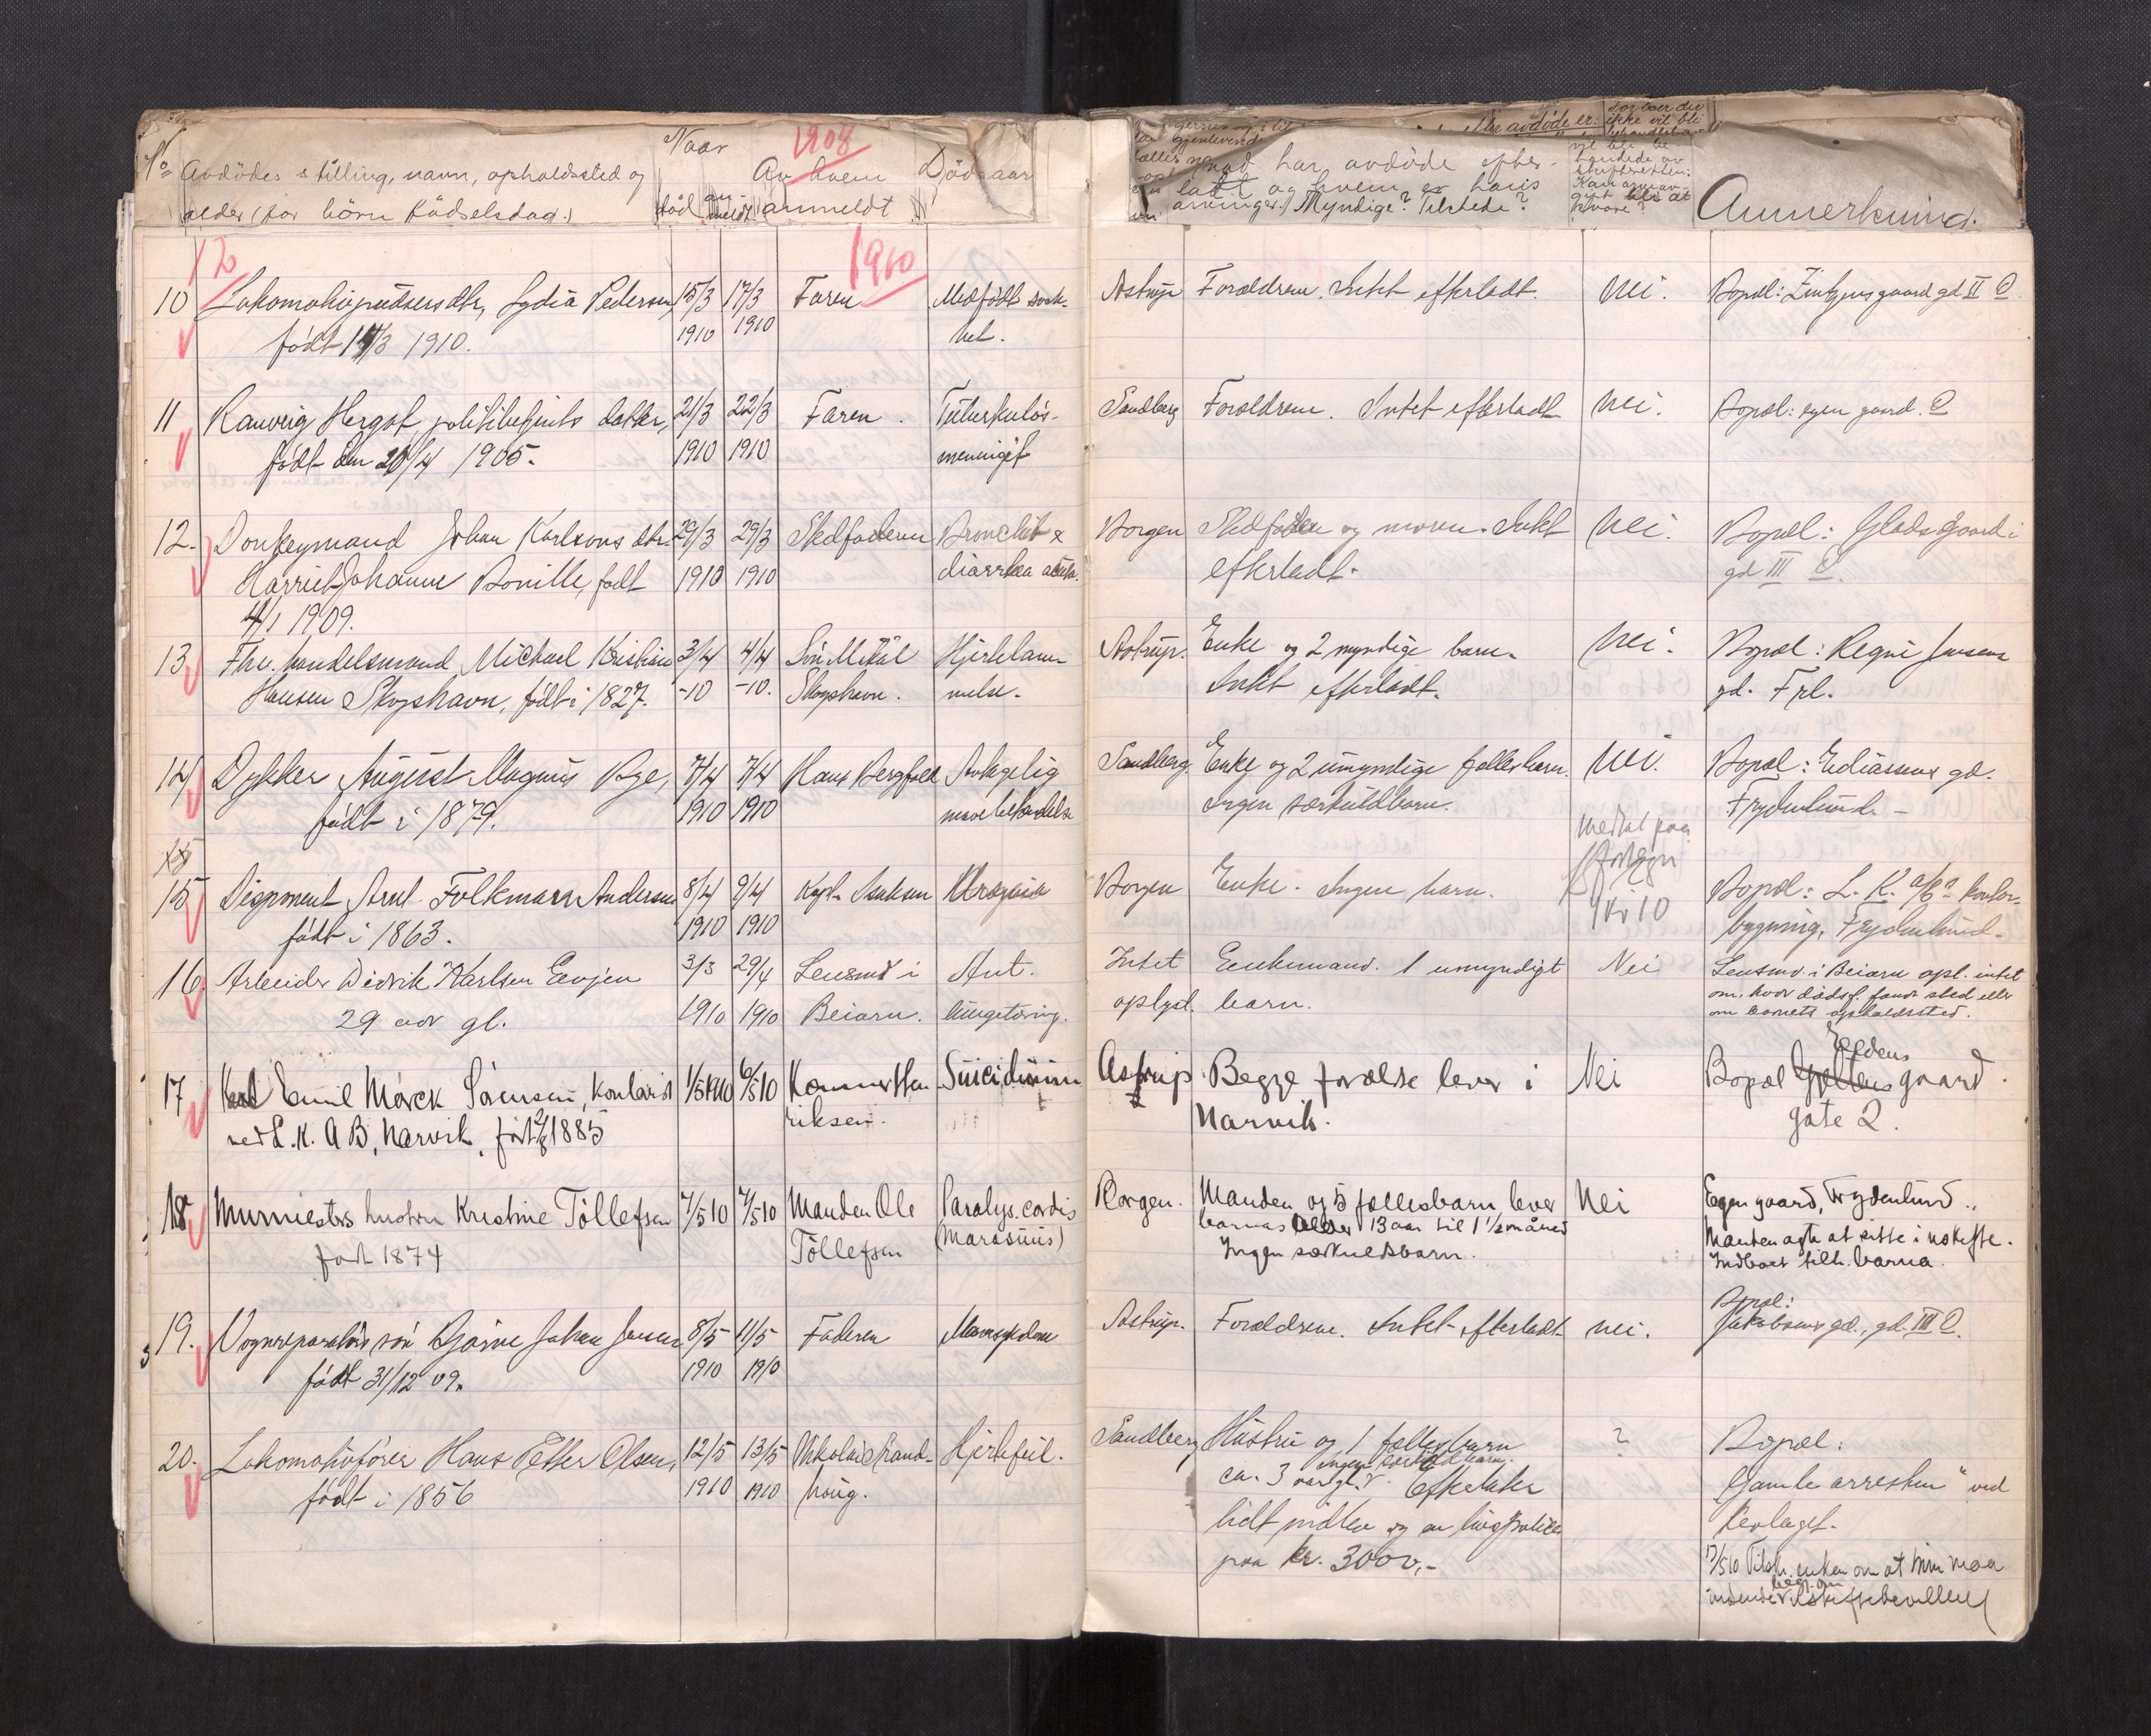 No Avdödes stilling, navn, opholdssted og
alder (for börn födselsdag.)
Naar
död an meldt
1908
Av hvem
anmeldt
Dödsaar
har avdöde efter-
latt og hvem er hans
arvinger? Myndige? Tilstede?
avdöde er:
ikke vil bli
Anmerkning.
12
1910
10 Lokomotivpudsers dtr, Lydia Pedersen, 15/3 17/3 Faren Medfödt svak- Astrup Forældrene. Intet efterladt. Nei. Bopæl: Zintzens gaard gd II C
født 14/3 1910. 1910 1910 het.
11 Ranveig Hergot, politibetjents datter, 21/3 22/3 Faren. Tuberkuløs- Sandberg Forældrene. Intet efterladt Nei. Bopæl: egen gaard. C
født den 20/4 1905. 1910 1910 meningit
12. Donkeymand Johan Karlsons dtr. 29/3 29/3 Stedfaderen Bronchit & Borgen Stedfaderen og moren. Intet Nei. Bopæl: Glads gaard i
Harriet Johanne Bonille, født 1910 1910 diarrhea acuta. efterladt. gd III C.
4/1 1909.
13 Fhv. handelsmand Michael Kristian 3/4 4/4 Sön Mikal Hjertelam- Astrup. Enke og 2 myndige barn. Nei. Bopæl: Regni Jensens
Hansen Skogshavn, født i 1827. -10 -10. Skogshavn. melse. Intet efterladt. gd. Frl.
14 Dykker August Magnus Bye, 7/4 7/4 Hans Bergfald Sandberg. Enke og 2 umyndige fællesbarn. Nei. Bopæl: Eliassens gd.
født i 1879. 1910 1910 Ingen særkuldbarn. Frydenlund. –
15
15 Disponent Arnt Folkmann Andersen 8/4 9/4 Kapt. Isaksen Uræmia Borgen Enke. Ingen barn. Bopæl: L. K. A/B's kontor-
født i 1863. 1910 1910 10 bygning, Frydenlund.
16. Arbeider Didrik Karlsen Evjen 3/3 29/4 Lensmd i Ant. Intet Enkemand. 1 umyndigt Nei Lensmd. i Beiarn opl. intet
29 aar gl. 1910 1910 Beiarn. lungetæring. oplyst. barn. om, hvor dødsf. fandt sted eller
om barnets opholdssted.
17 Emil Mørck Sörensen, kontorist 1/5 1910 6/5 10 Konner Hen- Suicidium Astrup Begge forældre lever i Nei Bopæl Eeldens gaard.
ved L. K. A B, Narvik, født 2/6 1885 riksen. Narvik. gate 2.
18 Murmesters hustru Kristine Töllefsen 7/5 10 7/5 10 Manden Ole Paralys. cordis Borgen. Manden og 5 fællesbarn lever Nei Egen gaard, Frydenlund.
født 1874 Töllefsen (Marasmus) barnas alder 13 aar til 1 1/2 maaned Manden agter at sitte i uskifte.
Ingen særkuldsbarn. Indboet tilh. barna.
19. Vognreparatörs sön Bjarne Johan Jensen 8/5 11/5 Faderen Astrup. Forældrene. Intet efterladt nei. Bopæl:
født 31/12 09. 1910 1910 Jakobsens gd., gd. III C.
20. Lokomotivfører Hans Petter Olsen, 12/5 13/5 Nikolai Strand- Hjertefeil. Sandberg Hustru og 1 fællesbarn ? Bopæl:
født i 1856 1910 1910 haug. ca. 3 aar gl. ingen særkuldbarn. Efterlater "Gamle arresten" ved
lidt midler og en livspolice Revlaget.
paa kr. 3000,- 17/5 10 Tilskr. enken om at hun maa
indsende begj. om uskiftebevilling